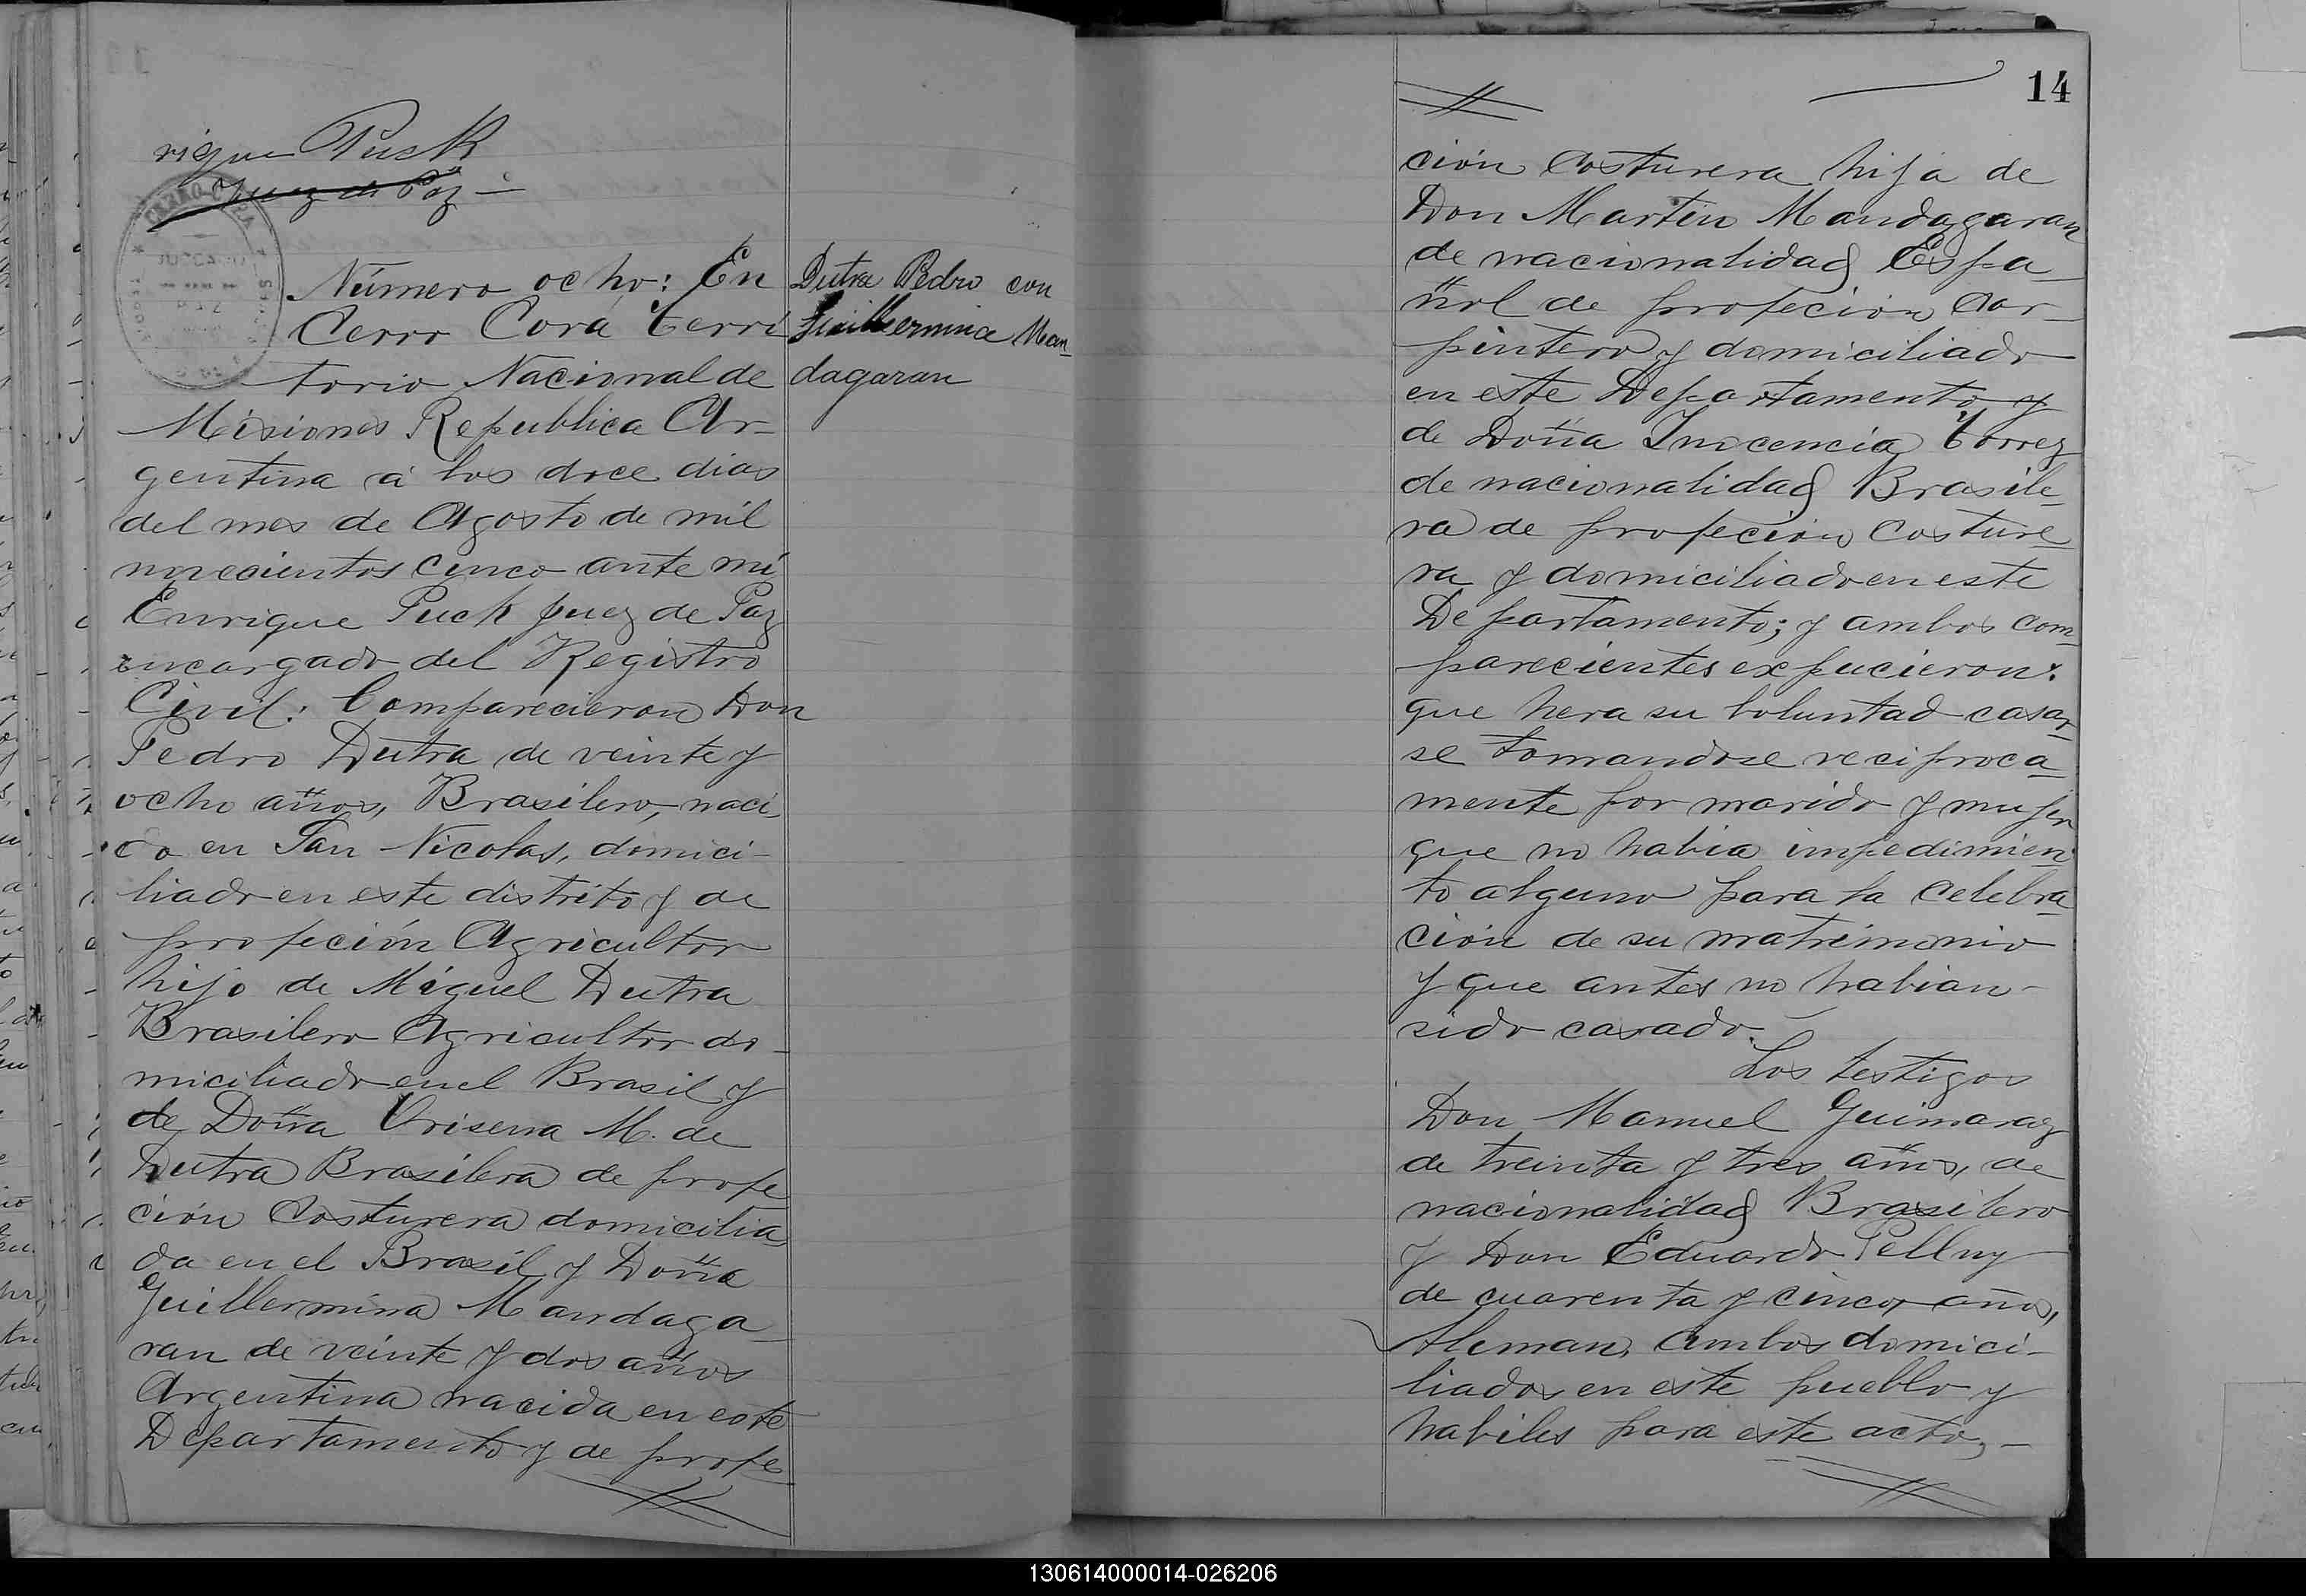 rique Puck
Juez de Paz
Número ocho: En
Cerro Corá Terri
torio Nacional de
Misiones Republica Ar-
gentina á los doce dias
del mes de Agosto de mil
novecientos cinco ante mi
Enrique Puck Juez de Paz
encargado del Registro
Civil: Comparecieron Don
Pedro Dutra de veinte y
ocho años, Brasilero, naci
do en San Nicolas, domici-
liado en este distrito y de
profeción Agricultor
hijo de Miguel Dutra
Brasilero Agricultor do-
miciliado en el Brasil y
de Doña Orisena M. de
Dutra Brasilera de profe
ción Costurera domicilia
da en el Brasil y Doña
Guillermina Mandaga
ran de veinte y dos años
Argentina nacida en este
Departamento y de profe
Dutra Pedro con
Guillermina Man
dagaran
14
ción Costurera hija de
Don Martin Mandagaran
de nacionalidad Espa
ñol de profeción Car-
pintero y domiciliado
en este Departamento y
de Doña Inocencia Torrez
de nacionalidad Brasile
ra de profeción Costure
ra y domiciliado en este
Departamento; y ambos com
parecientes expucieron:
que hera su boluntad casar
se tomandose reciproca
mente por marido y mujer
que no habia impedimien
to alguno para la celebra
ción de su matrimonio
y que antes no habian-
sido casado.
Los testigos
Don Manuel Guimaraz
de treinta y tres años, de
nacionalidad Brasilero
y Don Eduardo Pelluy
de cuarenta y cinco años,
Aleman, ambos domici-
liados en este pueblo y
habiles para este acto,-
130614000014-026206